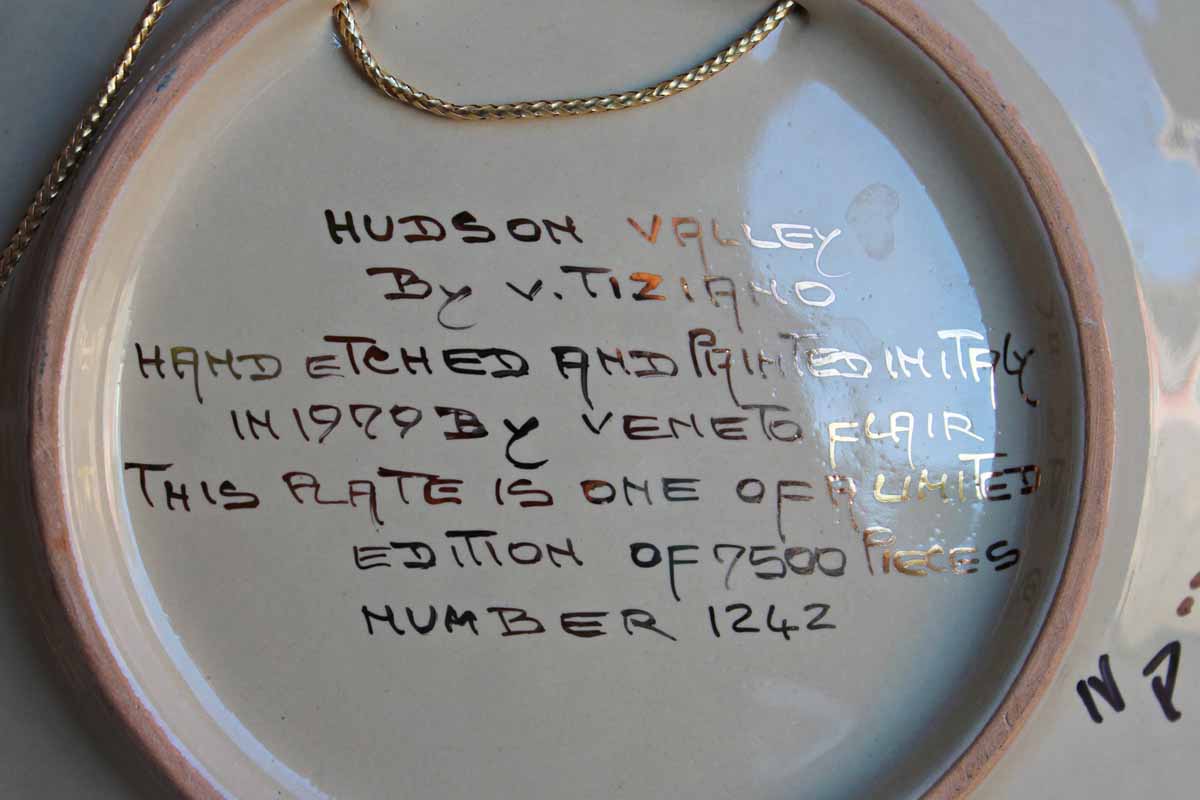 HUDSON VALLEY
By V. TIZIANO
HAND ETCHED AND PAINTED IN ITALY
IN 1979 By VENETO FLAIR
THIS PLATE IS ONE OF A LIMITED
EDITION OF 7500 PIECES
NUMBER 1242